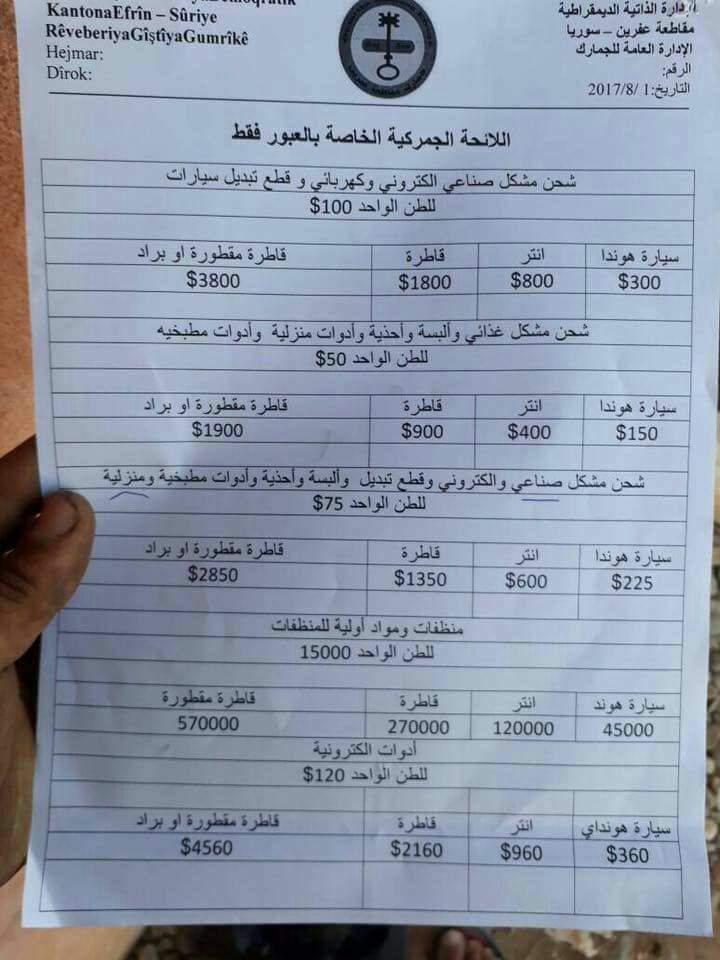 KantonaEfrîn – Sûriye
RêveberiyaGiştîyaGumrîkê
Hejmar:
Dîrok:
الإدارة الذاتية الديمقراطية
مقاطعة عفرين – سوريا
الإدارة العامة للجمارك
الرقم:
التاريخ:1 /2017/8
اللائحة الجمركية الخاصة بالعبور فقط
شحن مشكل صناعي الكتروني وكهربائي و قطع تبديل سيارات
للطن الواحد 100$
سيارة هوندا انتر قاطرة قاطرة مقطورة او براد
$300 $800 $1800 $3800
شحن مشكل غذائي وألبسة وأحذية وأدوات منزلية وأدوات مطبخيه
للطن الواحد 50$
سيارة هوندا انتر قاطرة قاطرة مقطورة او براد
$150 $400 $900 $1900
شحن مشكل صناعي والكتروني وقطع تبديل وألبسة وأحذية وأدوات مطبخية ومنزلية
للطن الواحد 75$
سيارة هوندا انتر قاطرة قاطرة مقطورة او براد
$225 $600 $1350 $2850
منظفات ومواد أولية للمنظفات
للطن الواحد 15000
سيارة هوند انتر قاطرة قاطرة مقطورة
45000 120000 270000 570000
أدوات الكترونية
للطن الواحد 120$
سيارة هونداي انتر قاطرة قاطرة مقطورة او براد
$360 $960 $2160 $4560